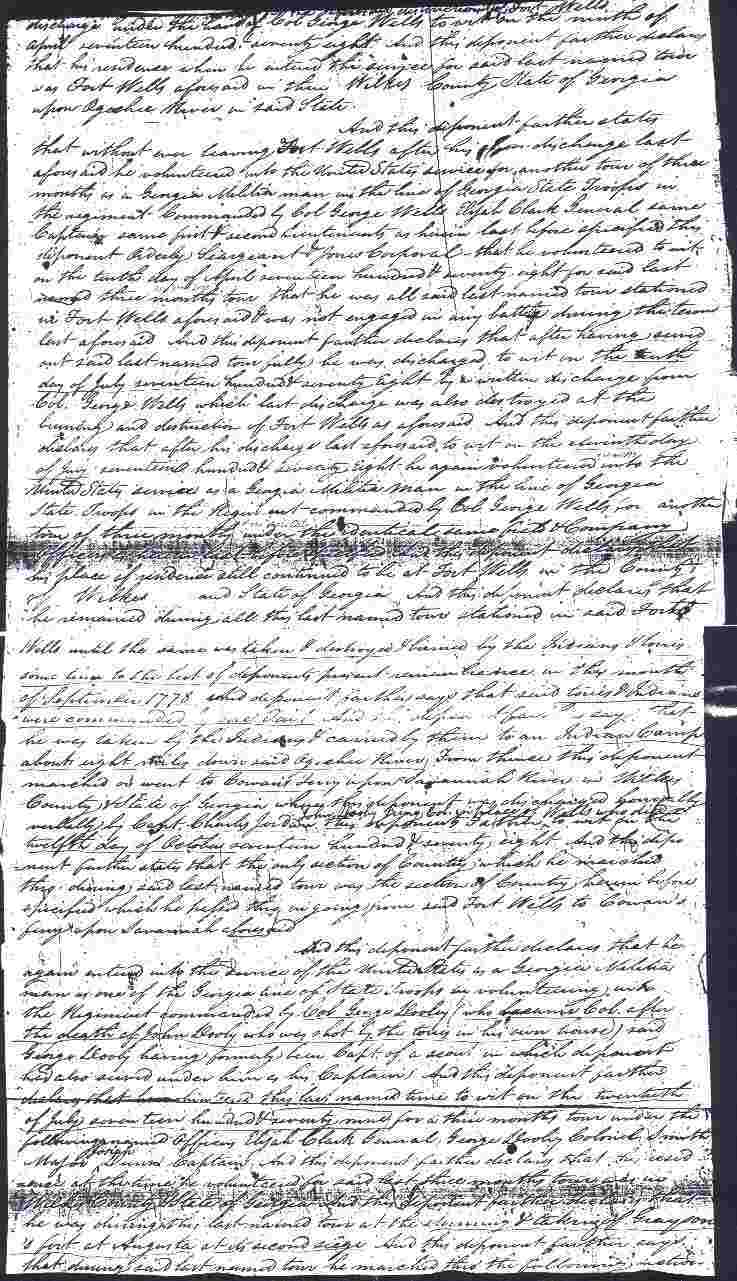 discharge under the hand of Col George Wells to wit on the ninth of
april seventeen hundred seventy eight. And this deponent farther declares
that his residence when he entered the service for said last named tour
was Fort Wells aforesaid in then Wilkes County State of Georgia
upon Ogechee River in said State.
And this deponent farther states
that without ever leaving Fort Wells after his discharge last
aforesaid he volunteered into the United States service for another tour of three
months as a Georgia Militia man in the line of Georgia State Troops in
the regiment Commanded by Col George Wells Elijah Clark General same
Captain same first & second Lieutenants as herein last before specified this
deponent Orderly Seargeant & Jones Corporal - that he volunteered to wit
on the tenth day of April seventeen hundred & seventy eight for said last
named three months tour that he was all said last named tour stationed
in Fort Wells aforesaid & was not engaged in any battle during the term
last aforesaid And this deponent farther declares that after having served
out said last named tour fully he was discharged to wit on the tenth
day of July seventeen hundred & seventy eight by a written discharge from
Col. George Wells which last discharge was also destroyed at the
burning and destruction of Fort Wells as aforesaid. And this deponent farther
declares that after his discharge last aforesaid to wit on the eleventh day
of July seventeen hundred & seventy eight he again volunteered into the
United States service as a Georgia Militia man in the line of Georgia
State Troops in the Regiment commanded by Col George Wells for another
tour of three months under the identical same & Company
this deponent
his place of residence still continued to be at Fort Wells in the County
of Wilkes and State of Georgia And this deponent declares that
he remained during all this last named tour stationed in said Fort
Wells until the same was taken & destroyed & burned by the Indians & tories
some time to the best of deponents present remembrance in the month
of September 1778 And deponent farther says that said tories & Indians
were commanded by And deponent says that
he was taken by the Indians & carried by them to an Indian Camp
about eight miles down said Ogechee River From thence this deponent
marched or went to Cowan's ferry upon Savannah River in Wilkes
County & State of Georgia where this deponent was discharged honorably
verbally by Capt. Charles Jordan this deponents Father to wit on the
twelfth day of October seventeen hundred & seventy eight. And this depo
nent farther states that the only section of Country which he marched
thro during said last named tour was the section of Country herein before
specified which he passed thro in going from said Fort Wells to Cowan's
ferry upon Savannah aforesaid
And this deponent farther declares that he
again entered into the service of the United States as a Georgia Militia
man as one of the Georgia line of State Troops in volunteering into
the Regiment commanded by Col George Dooly (who became Col. after
the death of John Dooly who was shot by the tories in his own house) said
George Dooly having formerly been Capt. of a scout in which deponent
had also served under him as his Captain And this deponent farther
declares that this last named time to wit on the twentieth
of July seventeen hundred & seventy nine for a three months tour under the
following named Officers Elijah Clark General, George Dooly Colonel, Smith
Major, Joseph Dunn Captain, And this deponent farther declares that he resided
at the time he volunteered for said last three months tour in
Wilkes County State of Georgia And this deponent farther declares that
he was during this last named tour at the storming & taking of Grayson
's fort at Augusta at its second siege And this deponent farther says
that during said last named tour he marched thro the following section